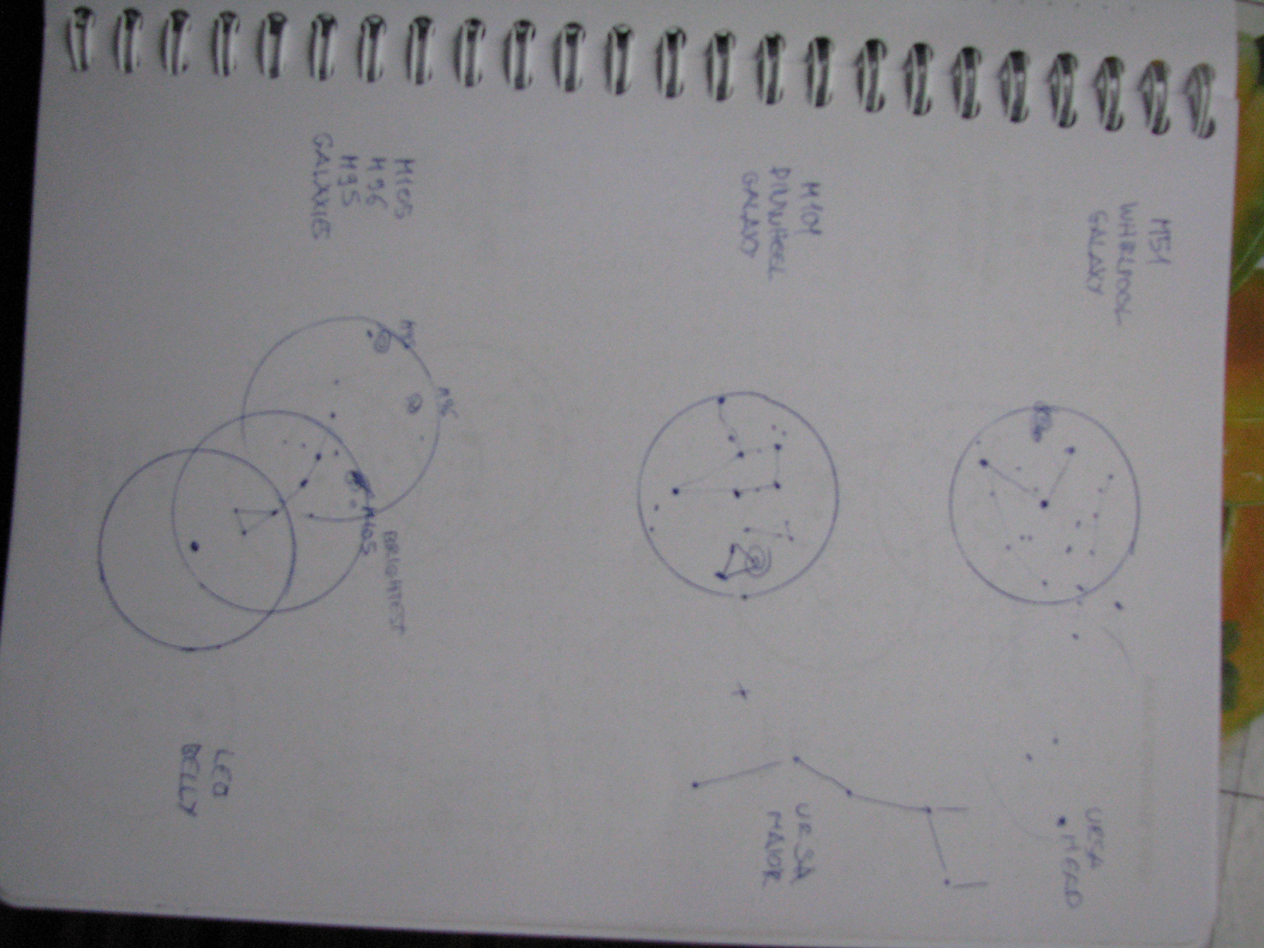 M51
WHIRLPOOL
GALAXY
URSA
M101
PINWHEEL
GALAXY
URSA
MAIOR
M105
M96
M95
GALAXIES
M95
M96
M105
BRIGHTEST
LEO
BELLY